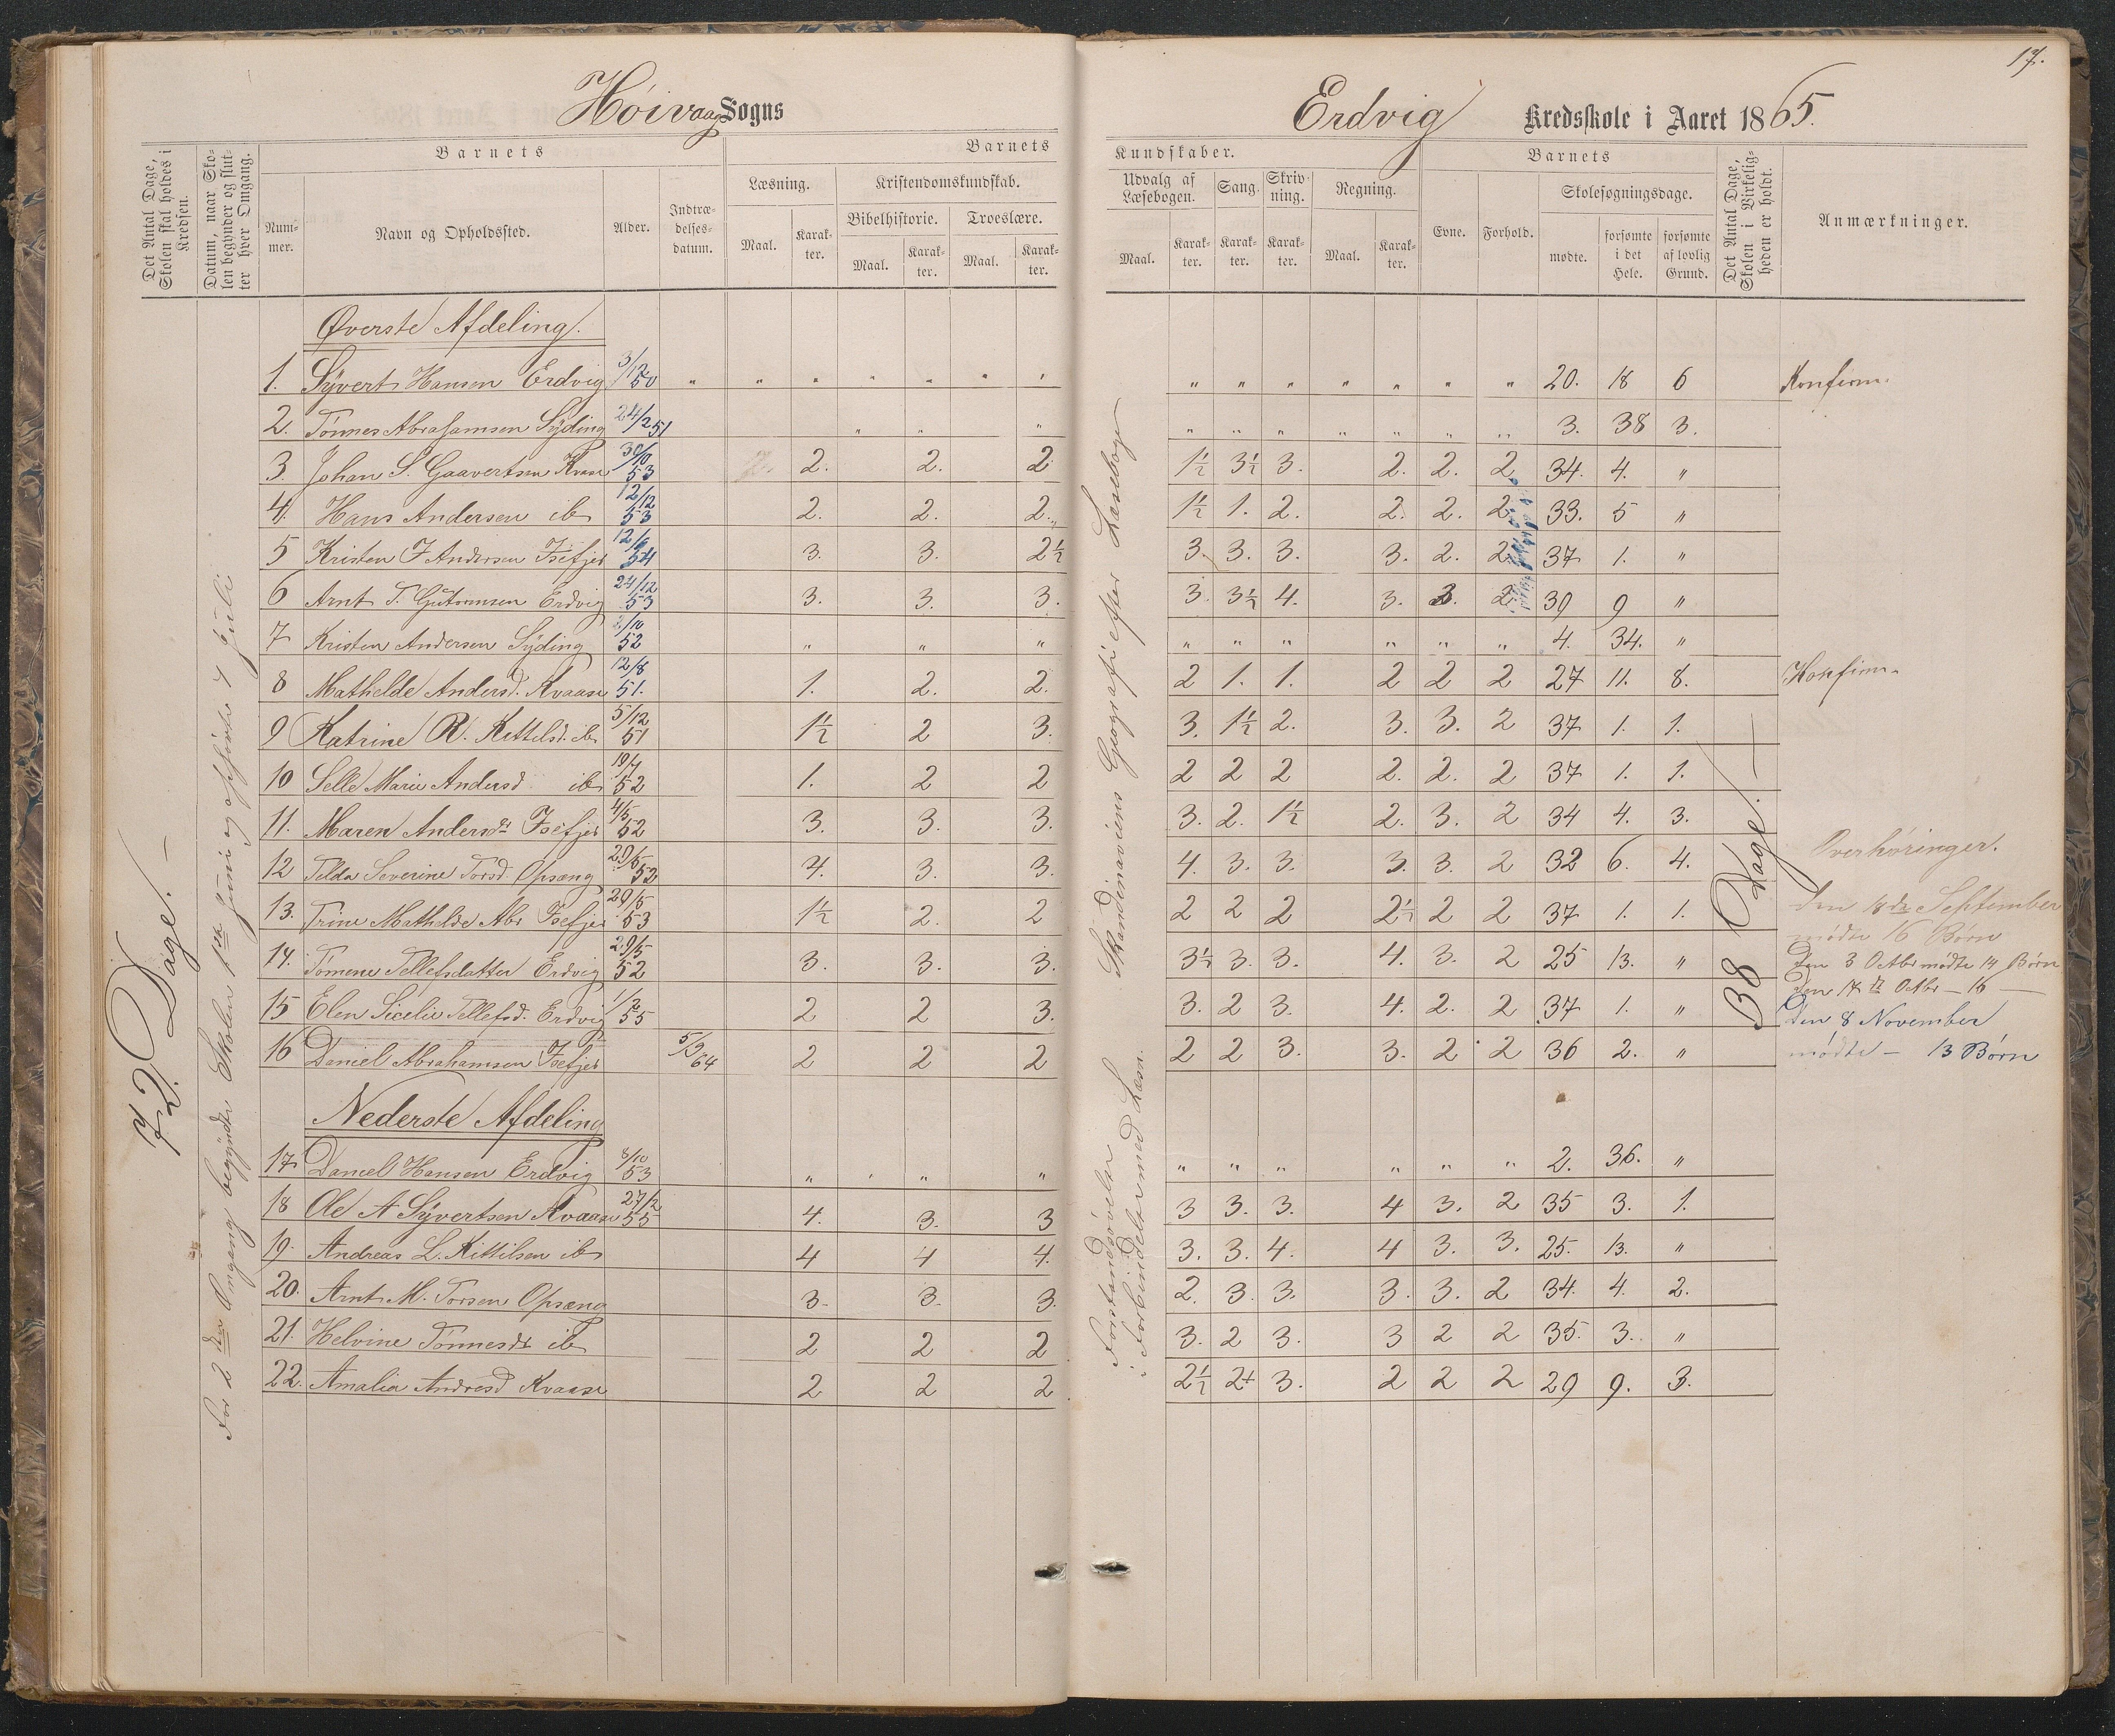 17.
Høivaag Sogns
Erdvig Kredsskole i Aaret 1865.
Det Antal Dage, Skolen skal holdes i Kredsen.
Datum, naar Skolen begynder og slutter hver Omgang.
Barnets
Nummer.
Navn og Opholdssted.
Alder.
Indtrædelsesdatum.
Barnets
Læsning.
Maal.
Karakter.
Kristendomskundskab.
Bibelhistorie.
Maal.
Karakter.
Troeslære.
Maal.
Karakter.
Kundskaber.
Udvalg af Læsebogen.
Maal.
Karakter.
Sang.
Karakter.
Skrivning.
Karakter.
Regning.
Maal.
Karakter.
Barnets
Evne.
Forhold.
Skolesøgningsdage.
mødte.
forsømte i det Hele.
forsømte af lovlig Grund.
Det Antal Dage, Skolen i Virkeligheden er holdt.
Anmærkninger.
72 Dage. —
For 2den Omgang begyndte Skolen 1ste Juni og ophørte 7 Juli
Skandinaviens Geografi efter Læsebogen
Forstandsøvelser
i Forbindelse med Læsn.
38 Dage. —
Øverste Afdeling.
1. Syvert Hansen Erdvig 3/12 50 " " " " " " " " " " " " " " 20. 18 6 Konfirm.
2. Tønnes Abrahamsen Syding 24/2 51 " " " " " " " " " " 3. 38 3.
3. Johan S. Gaavertsen Kvase 30/10 53 2. 2. 2 1½ 3½ 3. 2. 2. 2 34. 4. "
4. Hans Andersen ib 12/12 53 2. 2. 2. 1½ 1. 2. 2. 2. 2 33. 5 "
5 Kristen F Andersen Isefjer 12/6 54 3. 3. 2½ 3. 3. 3. 3. 2. 2 37 1. "
6 Arnt T. Gutormsen Erdvig 24/12 53 3. 3. 3. 3. 3½ 4. 3. 3. 2 39 9 "
7 Kristen Andersen Syding 2/10 52 " " " " " " " " " 4. 34. "
8 Mathelde Andersd. Kvaase 12/8 51. 1. 2. 2. 2 1. 1. 2 2 2 27 11. 8. Konfirm.
9 Katrine R. Kittelsd. ib 5/12 51 1½ 2 3. 3. 1½ 2. 3. 3. 2 37 1. 1.
10 Selle Marie Andersd ib 19/7 52 1. 2 2 2 2 2 2. 2. 2 37 1. 1.
11. Maren Andersdt Isefjer 4/5 52 3. 3. 3. 3. 2. 1½ 2. 3. 2 34 4. 3.
12 Telda Severine Torsd. Opsang 29/5 52 4. 3. 3. 4. 3. 3. 3. 3. 2 32 6. 4.
13. Trine Mathelde Abr Isefjer 29/5 53 1½ 2. 2 2 2 2 2½ 2 2 37 1. 1.
14. Tømene Tellefsdatter Erdvig 29/5 52 3. 3. 3. 3½ 3. 3. 4. 3. 2 25 13. "
15 Elen Sicelie Tellefsd. Erdvig 1/2 55 2 2 3. 3. 2 3. 4. 2. 2 37 1. "
16 Daniel Abrahamsen Isefjer 5/9 64 2 2 2 2 2 3. 3. 2 2 36 2. "
Overhøringer.
den 18de September
mødte 16 Børn
Den 3 Octbr mødte 14 Børn
den 17de Octbr — 16 —
Den 8 November
mødte — 13 Børn
Nederste Afdeling
17 Daniel Hansen Erdvig 8/10 53 " " " " " " " " " 2. 36. "
18 Ole A Syvertsen Kvaase 27/2 55 4. 3. 3 3 3. 3. 4 3. 2 35 3. 1.
19. Andreas L. Kittilsen ib 4 4 4. 3. 3. 4. 4 3. 3. 25. 13. "
20. Arnt M. Torsen Opsang 3. 3. 3. 2. 3. 3. 3. 3. 2 34. 4. 2.
21. Helvine Tønnesdt ib 2 2 2 3. 2 3. 3 2 2 35. 3. "
22. Amalia Andresd Kvaase 2 2 2 2½ 2½ 3. 2 2 2 29 9. 3.